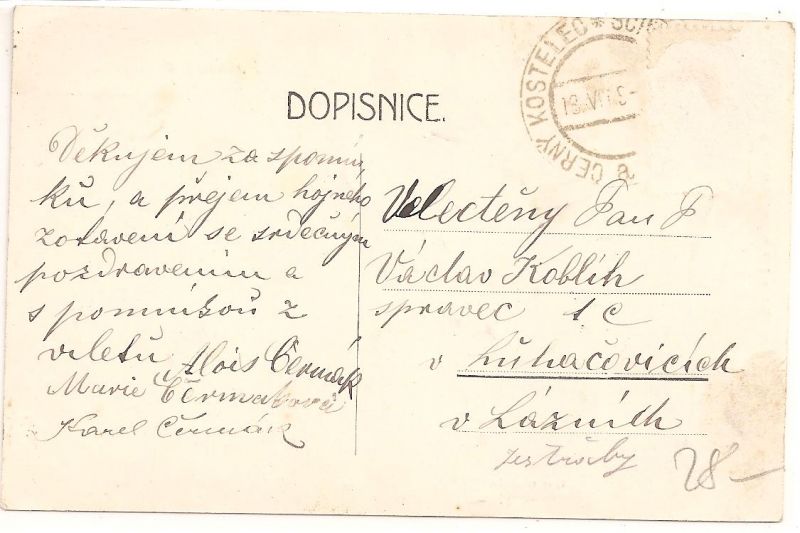 DOPISNICE.
ČERNÝ KOSTELEC *
Děkujem za spomín
ků, a přejem hojného
zotavení se srdečným
pozdravením a
spomínkou z
vyletu Alois Čermák
Marie Čermaková
Karel Čermák
Velectěný Pan P
Václav Koblih
spravec t c
v Luhačovicích
v Lázních
28-